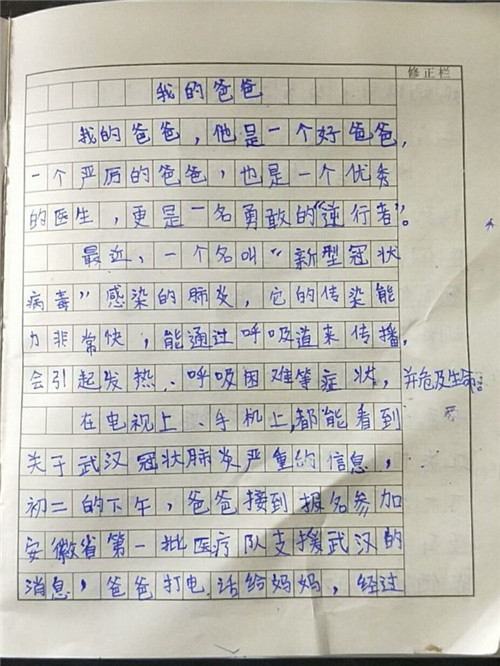 修正栏
我的爸爸
我的爸爸，他是一个好爸爸，
一个严厉的爸爸，也是一个优秀
的医生，更是一名勇敢的“逆行者”。
最近，一个名叫“新型冠状
病毒”感染的肺炎，它的传染能
力非常快，能通过呼吸道来传播，
会引起发热、呼吸困难等症状，并危及生命。
在电视上、手机上，都能看到
关于武汉冠状肺炎严重的信息，
初二的下午，爸爸接到报名参加
安徽省第一批医疗队支援武汉的
消息，爸爸打电话给妈妈，经过